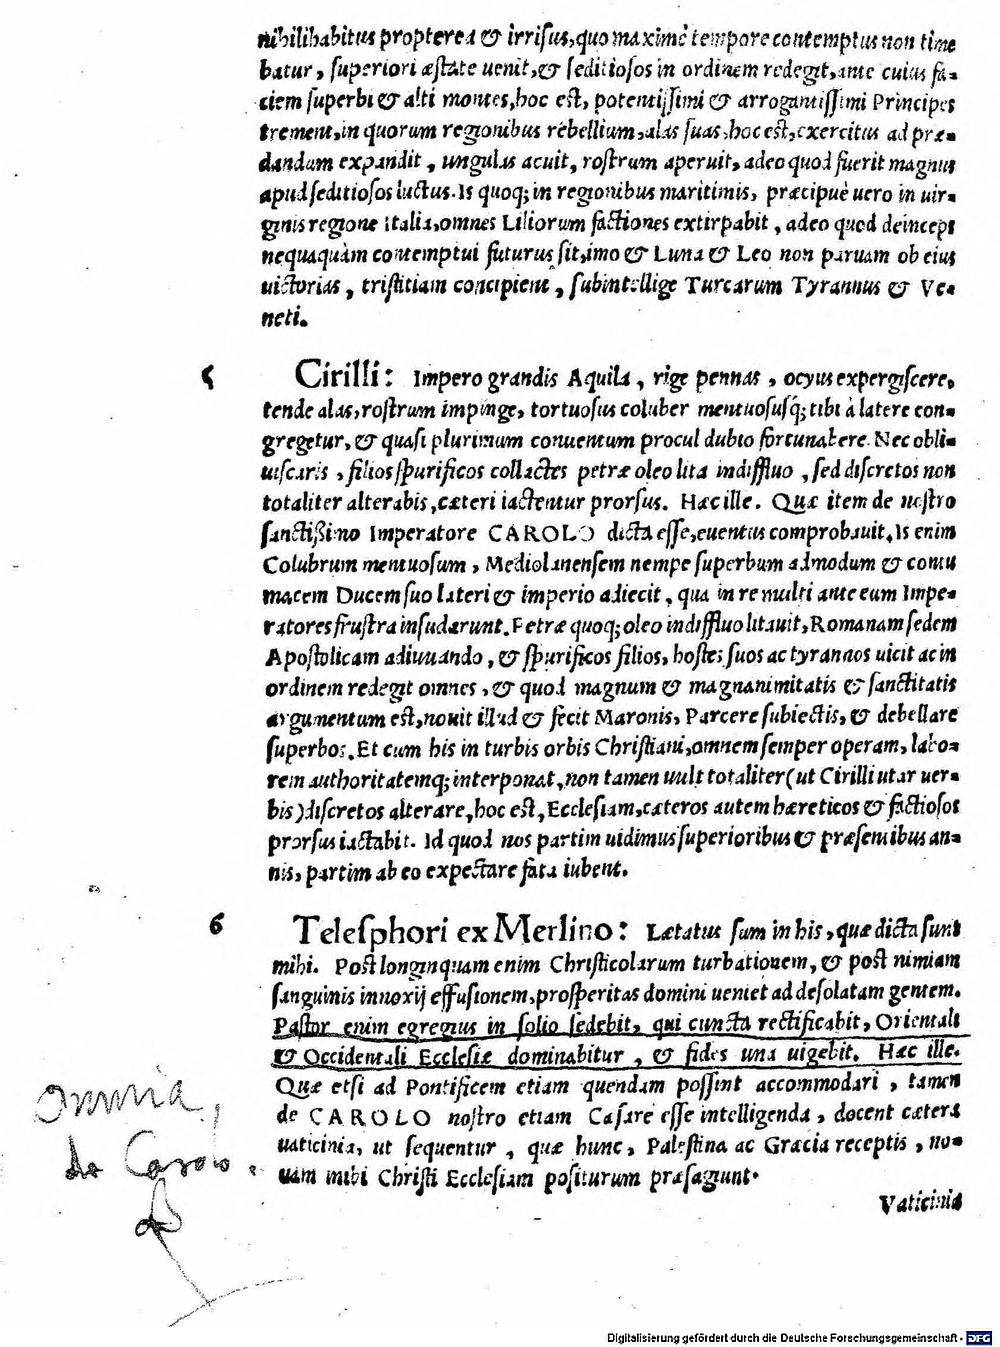 nihilihabitus propterea & irrisus, quo maximè tempore contemptus non time
batur, superiori æstate uenit, & seditiosos in ordinem redegit, ante cuius fa-
ciem superbi & alti montes, hoc est, potentissimi & arrogantissimi Principes
trement, in quorum regionibus rebellium, alas suas, hoc est, exercitus ad præ-
dandam expandit, ungulas acuit, rostrum aperuit, adeo quod fuerit magnus
apud seditiosos luctus. Is quoq; in regionibus maritimis, præcipuè uero in uir-
ginis regione Italia, omnes Liliorum factiones extirpabit, adeo quod deinceps
nequaquàm contemptui futurus sit, imo & Luna & Leo non paruam ob eius
uictorias, tristitiam concipient, subintellige Turcarum Tyrannus & Ve-
neti.
5 Cirilli: Impero grandis Aquila, rige pennas, ocyus expergiscere,
tende alas, rostrum impinge, tortuosus coluber mentuosusq; tibi à latere con-
gregetur, & quasi plurimum conuentum procul dubio fortunabere. Nec obli-
uiscaris, filios spurificos collactes petræ oleo lita indiffluo, sed discretos non
totaliter alterabis, cæteri iactentur prorsus. Hæc ille. Quæ item de nostro
sanctißimo Imperatore CAROLO dicta esse, euentus comprobauit. Is enim
Colubrum mentuosum, Mediolanensem nempe superbum admodum & contu
macem Ducem suo lateri & imperio adiecit, qua in re multi ante eum Impe-
ratores frustra insudarunt. Petræ quoq; oleo indiffluo litauit, Romanam sedem
Apostolicam adiuuando, & spurificos filios, hostes suos ac tyrannos uicit ac in
ordinem redegit omnes, & quod magnum & magnanimitatis & sanctitatis
argumentum est, nouit illud & fecit Maronis, Parcere subiectis, & debellare
superbos. Et cum his in turbis orbis Christiani, omnem semper operam, labo-
rem authoritatemq; interponat, non tamen uult totaliter (ut Cirilli utar uer-
bis) discretos alterare, hoc est, Ecclesiam, cæteros autem hæreticos & factiosos
prorsus iactabit. Id quod nos partim uidimus superioribus & præsentibus an-
nis, partim ab eo expectare fata iubent.
6 Telesphori ex Merlino: Lætatus sum in his, quæ dicta sunt
mihi. Post longinquam enim Christicolarum turbationem, & post nimiam
sanguinis innoxij effusionem, prosperitas domini ueniet ad desolatam gentem.
Pastor enim egregius in solio sedebit, qui cuncta rectificabit, Orientali
& Occidentali Ecclesiæ dominabitur, & fides una uigebit. Hæc ille.
Quæ etsi ad Pontificem etiam quendam possint accommodari, tamen
de CAROLO nostro etiam Cæsare esse intelligenda, docent cætera
uaticinia, ut sequentur, quæ hunc, Palestina ac Græcia receptis, no-
uam inibi Christi Ecclesiam positurum præsagiunt.
Vaticinia
omnia,
de Carolo.
Digitalisierung gefördert durch die Deutsche Forschungsgemeinschaft - DFG